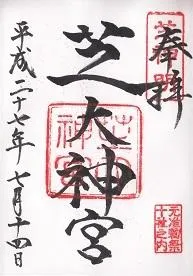 奉拝
元准勅祭
十社之内
芝大神宮
芝大神宮
平成二十七年七月十四日